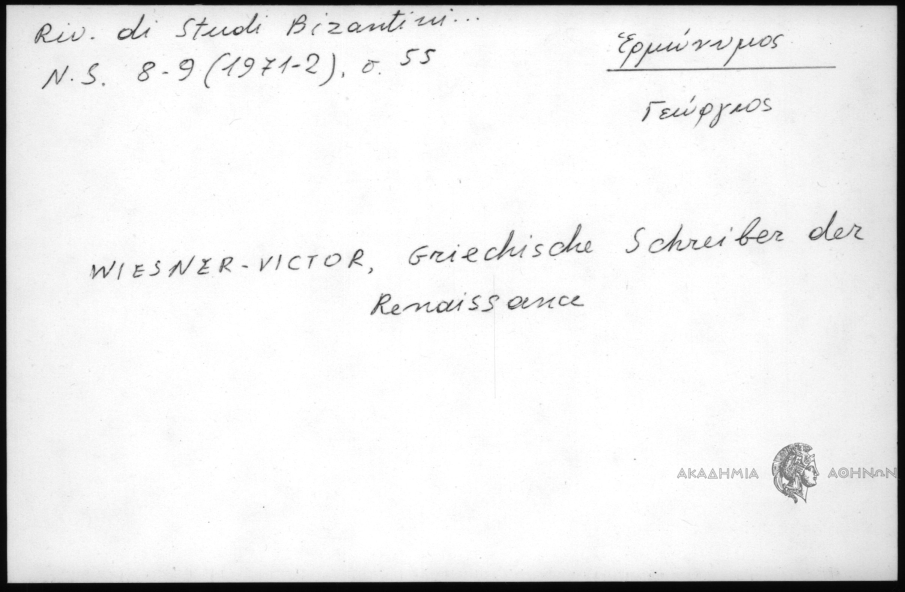 Riv. di Studi Bizantini...
N.S. 8-9 (1971-2), σ. 55
Ἑρμώνυμος
Γεώργιος
WIESNER-VICTOR, Griechische Schreiber der
Renaissance
ΑΚΑΔΗΜΙΑ ΑΘΗΝΩΝ